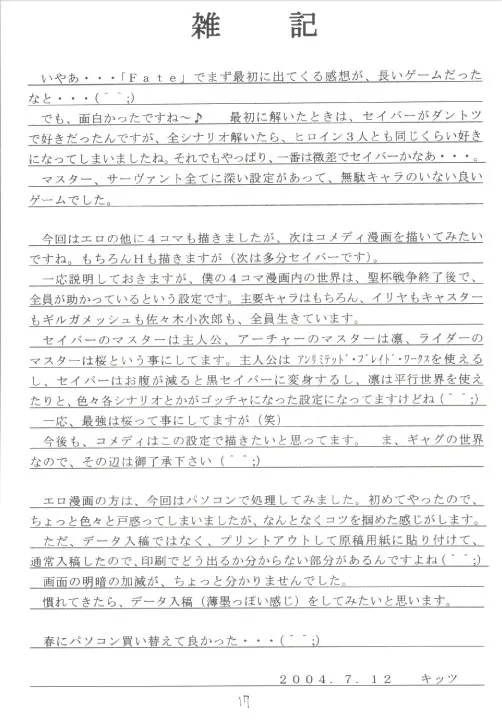 雑　記
いやあ・・・「Ｆａｔｅ」でまず最初に出てくる感想が、長いゲームだった
なと・・・(＾＾;)
でも、面白かったですね～♪　最初に解いたときは、セイバーがダントツ
で好きだったんですが、全シナリオ解いたら、ヒロイン３人とも同じくらい好き
になってしまいましたね。それでもやっぱり、一番は微差でセイバーかなあ・・・。
マスター、サーヴァント全てに深い設定があって、無駄キャラのいない良い
ゲームでした。
今回はエロの他に４コマも描きましたが、次はコメディ漫画を描いてみたい
ですね。もちろんＨも描きますが（次は多分セイバーです）。
一応説明しておきますが、僕の４コマ漫画内の世界は、聖杯戦争終了後で、
全員が助かっているという設定です。主要キャラはもちろん、イリヤもキャスター
もギルガメッシュも佐々木小次郎も、全員生きています。
セイバーのマスターは主人公、アーチャーのマスターは凛、ライダーの
マスターは桜という事にしてます。主人公は ｱﾝﾘﾐﾃｯﾄﾞ･ﾌﾞﾚｲﾄﾞ･ﾜｰｸｽを使える
し、セイバーはお腹が減ると黒セイバーに変身するし、凛は平行世界を使え
たりと、色々各シナリオとかがゴッチャになった設定になってますけどね(＾＾;)
一応、最強は桜って事にしてますが（笑）
今後も、コメディはこの設定で描きたいと思ってます。　ま、ギャグの世界
なので、その辺は御了承下さい(＾＾;)
エロ漫画の方は、今回はパソコンで処理してみました。初めてやったので、
ちょっと色々と戸惑ってしまいましたが、なんとなくコツを掴めた感じがします。
ただ、データ入稿ではなく、プリントアウトして原稿用紙に貼り付けて、
通常入稿したので、印刷でどう出るか分からない部分があるんですよね(＾＾;)
画面の明暗の加減が、ちょっと分かりませんでした。
慣れてきたら、データ入稿（薄墨っぽい感じ）をしてみたいと思います。
春にパソコン買い替えて良かった・・・(＾＾;)
２００４．７．１２　　キッツ
17